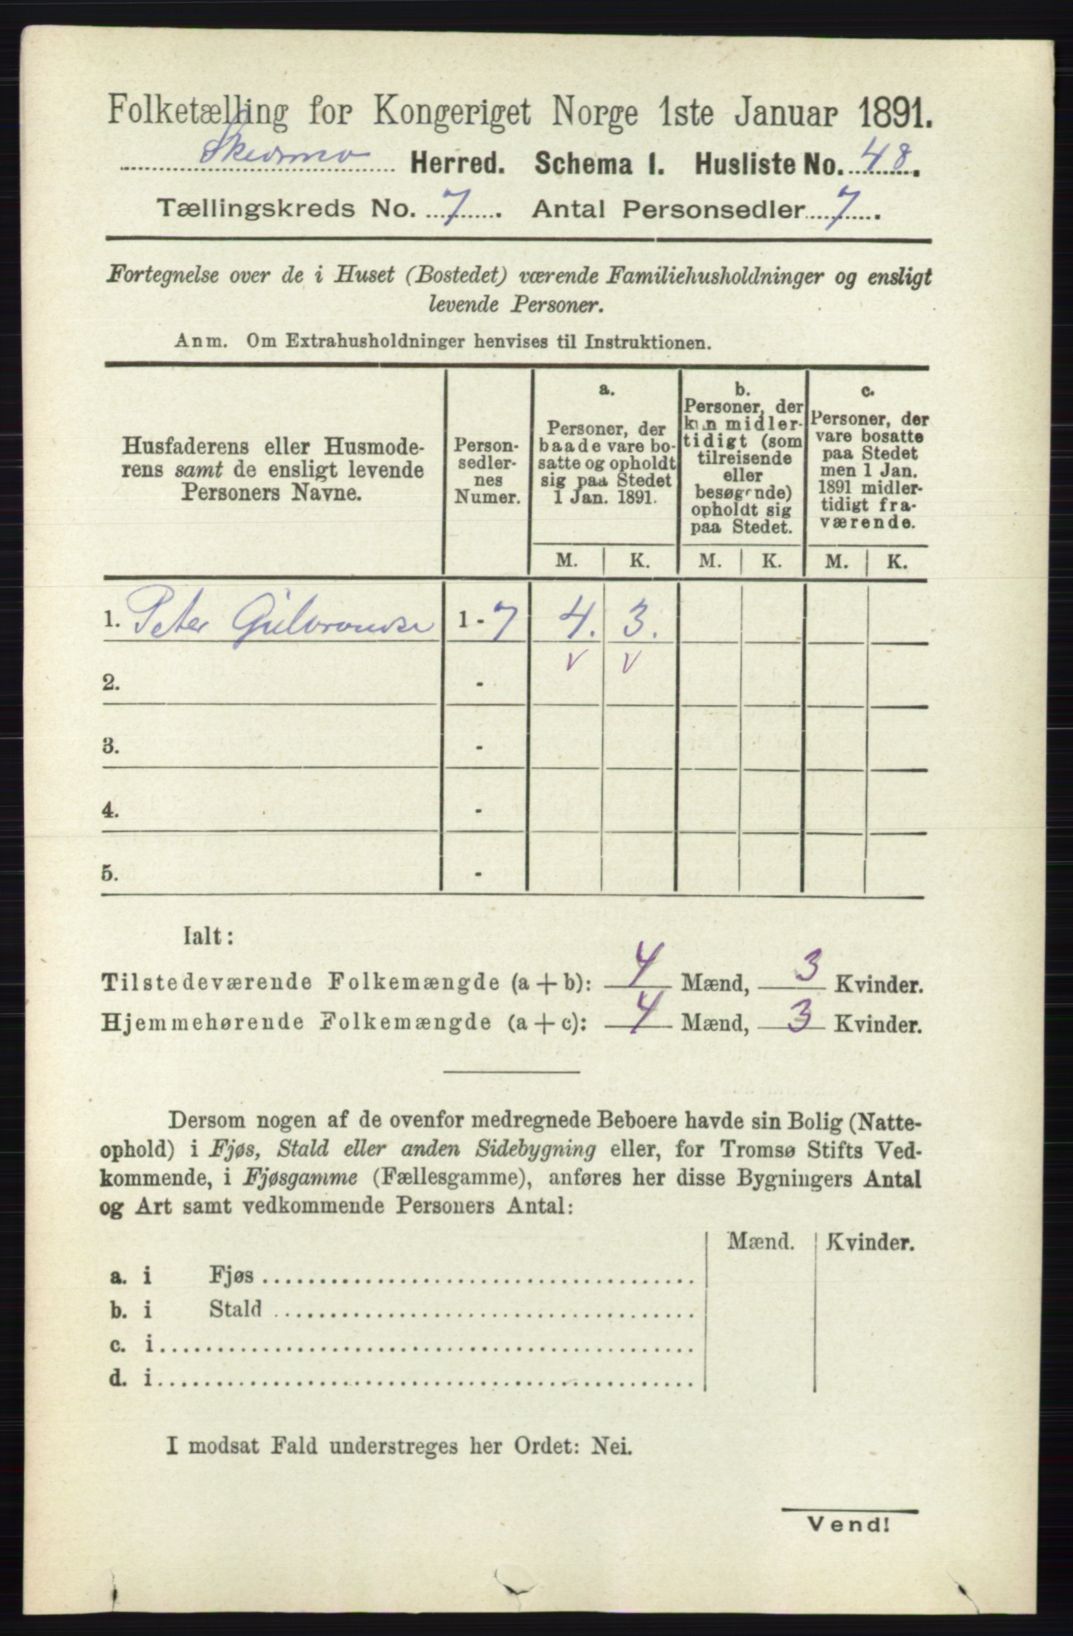 Folketælling for Kongeriget Norge 1ste Januar 1891.
Skedsmo Herred. Schema I. Husliste No. 48.
Tællingskreds No. 7. Antal Personsedler 7.
Fortegnelse over de i Huset (Bostedet) værende Familiehusholdninger og ensligt
levende Personer.
Anm. Om Extrahusholdninger henvises til Instruktionen.
Husfaderens eller Husmode-
rens samt de ensligt levende
Personers Navne.
Person-
sedler-
nes
Numer.
a.
Personer, der
baade vare bo-
satte og opholdt
sig paa Stedet
1 Jan. 1891.
M. K.
b.
Personer, der
kun midler-
tidigt (som
tilreisende
eller
besøgende)
opholdt sig
paa Stedet.
M. K.
c.
Personer, der
vare bosatte
paa Stedet
men 1 Jan.
1891 midler-
tidigt fra-
værende.
M. K.
1. Peter Gulbrandse 1 - 7 4. 3.
v v
2. -
3. -
4. -
5. -
Ialt:
Tilstedeværende Folkemængde (a + b): 4 Mænd, 3 Kvinder.
Hjemmehørende Folkemængde (a + c): 4 Mænd, 3 Kvinder.
Dersom nogen af de ovenfor medregnede Beboere havde sin Bolig (Natte-
ophold) i Fjøs, Stald eller anden Sidebygning eller, for Tromsø Stifts Ved-
kommende, i Fjøsgamme (Fællesgamme), anføres her disse Bygningers Antal
og Art samt vedkommende Personers Antal:
Mænd. Kvinder.
a. i Fjøs
b. i Stald
c. i
d. i
I modsat Fald understreges her Ordet: Nei.
Vend!